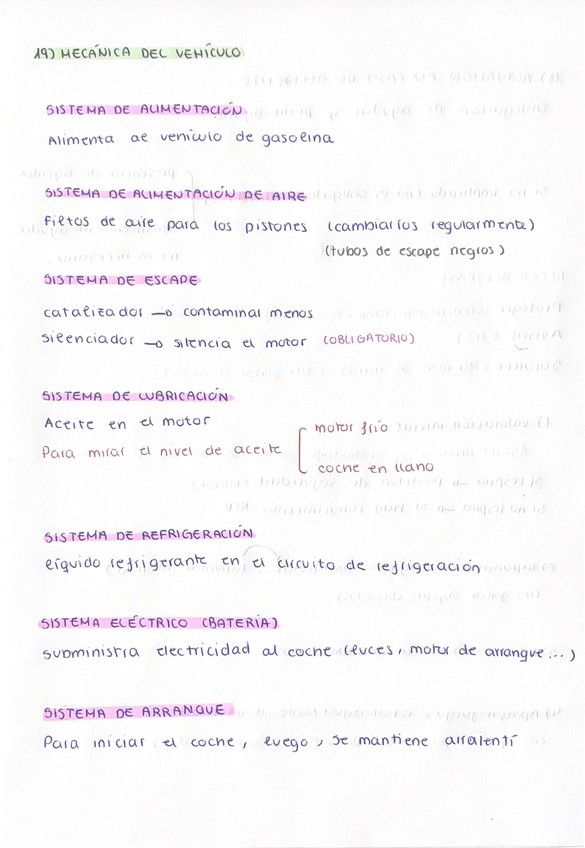 19) MECÁNICA DEL VEHÍCULO
SISTEMA DE ALIMENTACIÓN
Alimenta al vehículo de gasolina
SISTEMA DE ALIMENTACIÓN DE AIRE
Filtos de aire para los pistones (cambiarlos regularmente)
(tubos de escape negros)
SISTEMA DE ESCAPE
catalizador → contaminar menos
silenciador → silencia el motor (OBLIGATORIO)
SISTEMA DE LUBRICACIÓN
Aceite en el motor
Para mirar el nivel de aceite
motor frío
coche en llano
SISTEMA DE REFRIGERACIÓN
líquido refrigerante en el circuito de refrigeración
SISTEMA ELÉCTRICO (BATERÍA)
Suministra electricidad al coche (luces, motor de arranque...)
SISTEMA DE ARRANQUE
Para iniciar el coche, luego, se mantiene arralentí